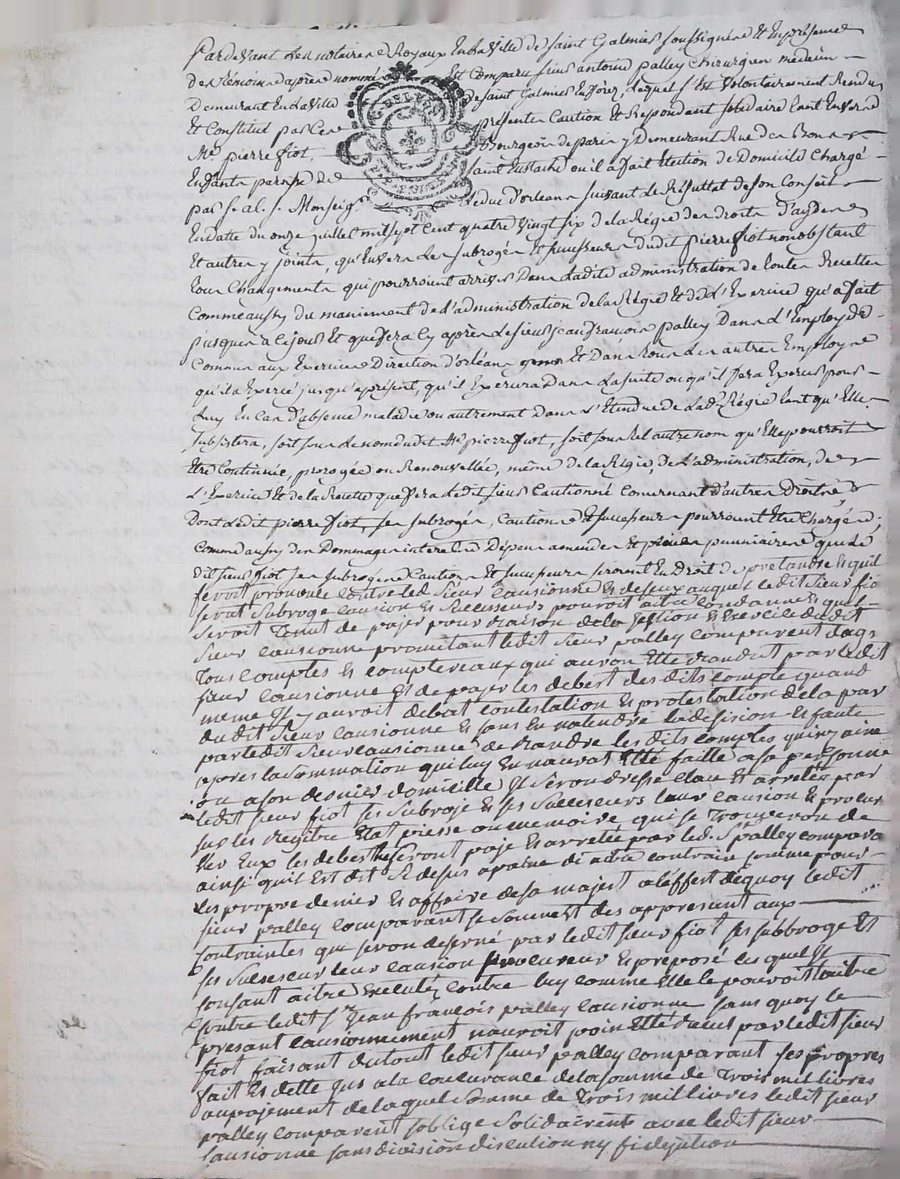 Pardevant Les notaires Royaux En La Ville de Saint Galmier soussignés Et En présence
des témoins après nommés Est Comparu sieur antoine palley Chirurgien médecin
Demeurant En La Ville de saint Galmier En forez, Lequel s'est Volontairement Rendu
Et Constitué par Ces présentes Caution Et Respondant solidaire tant Envers
Me. pierre fiot, Bourgeois de paris y Demeurant Rue des Bons
Enfants paroisse de saint Eustache ou il a fait Election de Domicile Chargé
par s. a. s. Monseigr. Le duc D'orleans suivant Le Résultat de son Conseil
En datte du onze juillet mil sept Cent quatre Vingt six de la Régie des droits D'aydes
Et autres y joints, qu'Envers Les subrogés Et successeurs dudit pierre fiot nonobstant
tous Changements qui pourroient arriver Dans Ladite administration de toutes Recettes
Comme aussy du maniement de L'administration de la Régie Et de L'Exercice qu'a fait
jusques a Ce jour Et que fera Cy après Le sieur jean francois palley Dans L'Employ de
Commis aux Exercices Direction D'orléans Et Dans tous Les autres Employs
qu'il a Exercé jusqu'aprésent, qu'il Exercera Dans La suite ou qu'il fera Exercer pour
Luy En Cas D'absence maladie ou autrement Dans L'Etendue de La de. Régie tant qu'Elle
subsistera, soit sous Le nom dudit Me pierre fiot, soit sous tel autre nom qu'Elle pourroit
Etre Continuée, prorogée ou Renouvellée, même de la Régie, de L'administration, de
L'Exercice Et de la Recette que fera Ledit sieur Cautionné Concernant d'autres Droits
Dont Ledit pierre fiot, ses subrogés, Cautions Et successeurs pourroient Etre Chargés,
Comme aussy des Dommages interets Dépens amendes Et peines pecuniaires que Le
dit sieur fiot ses subrogés Cautions Et successeurs seroient En Droit de pretandre Es quil
feroit prononcé Contre led. Sieur Causionne Es de Ceux auquel ledit sieur fio
serat Subroge Causion Es Successeurs pouroit aitre Condanne Es quel
Seroit Tenut de payer pour Raison de la gestion Es Exercice dudit
Sieur Causionne promitant ledit Sieur palley comparent
Tous Comptes Es comptereaux qui auron Ette Randut par ledit
sieur Causionne Es de payer les debest des dits compte quand
meme Il y auroit debat contestation Es protestation de la par
du dit Sieur Causionne Es sans En natendre la desision Es faute
par ledit Sieur Causionne de Randre les dits comptes quinzaine
apres la Sommation qui luy En naurat Ette faitte a sa personne
ou a son dernier domicille Il Seron dresse Clau Es arrettes par
ledit sieur fiot ses Subroje Es ses Successeurs leur Causion Es procur
sur les Regitre Etat piesse ou memoire qui se Trouveron de
Ver Eux les debest Seront paje Es arrettes par le d. S palley compara
ainsi quil Est dit Si desus apaine di aitre contrain Comme pour
Les propre denier Es affaire de sa majest a leffest de quoy ledit
sieur palley Comparant se Soumest des appresant aux
Contraintes qui seron deserné par ledit sieur fiot ses subbroge Et
ses Sucseseur leur causion procureur Es preposé les quelles
aitre Executés Contre luy comme Elle le pouroit aitre
Contre ledit Sr. Jean françois palley Causionne sans quoy le
presant Causionnement nauroit poin Etté par ledit sieur
fiot faisant du tout ledit sieur palley comparant ses propres
fait Es dette a la Concurance de la somme de Trois mil livres
au pajement de la quel Somme de Trois mil livres ledit sieur
palley comparent soblige Solidairent avec ledit sieur
Causionne sans division discution ny fidejution